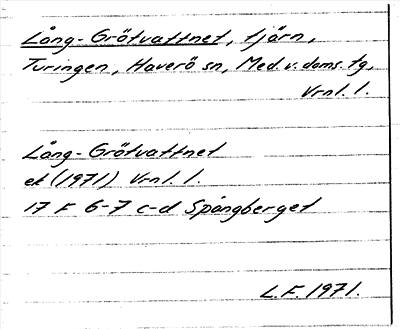 Lång-Grötvattnet, tjärn,
Turingen, Haverö sn, Med. v. doms. tg,
Vrnl. 1.
Lång-Grötvattnet
ek (1971) Vrnl. 1.
17 F 6-7 c-d Spångberget
L.F. 1971.